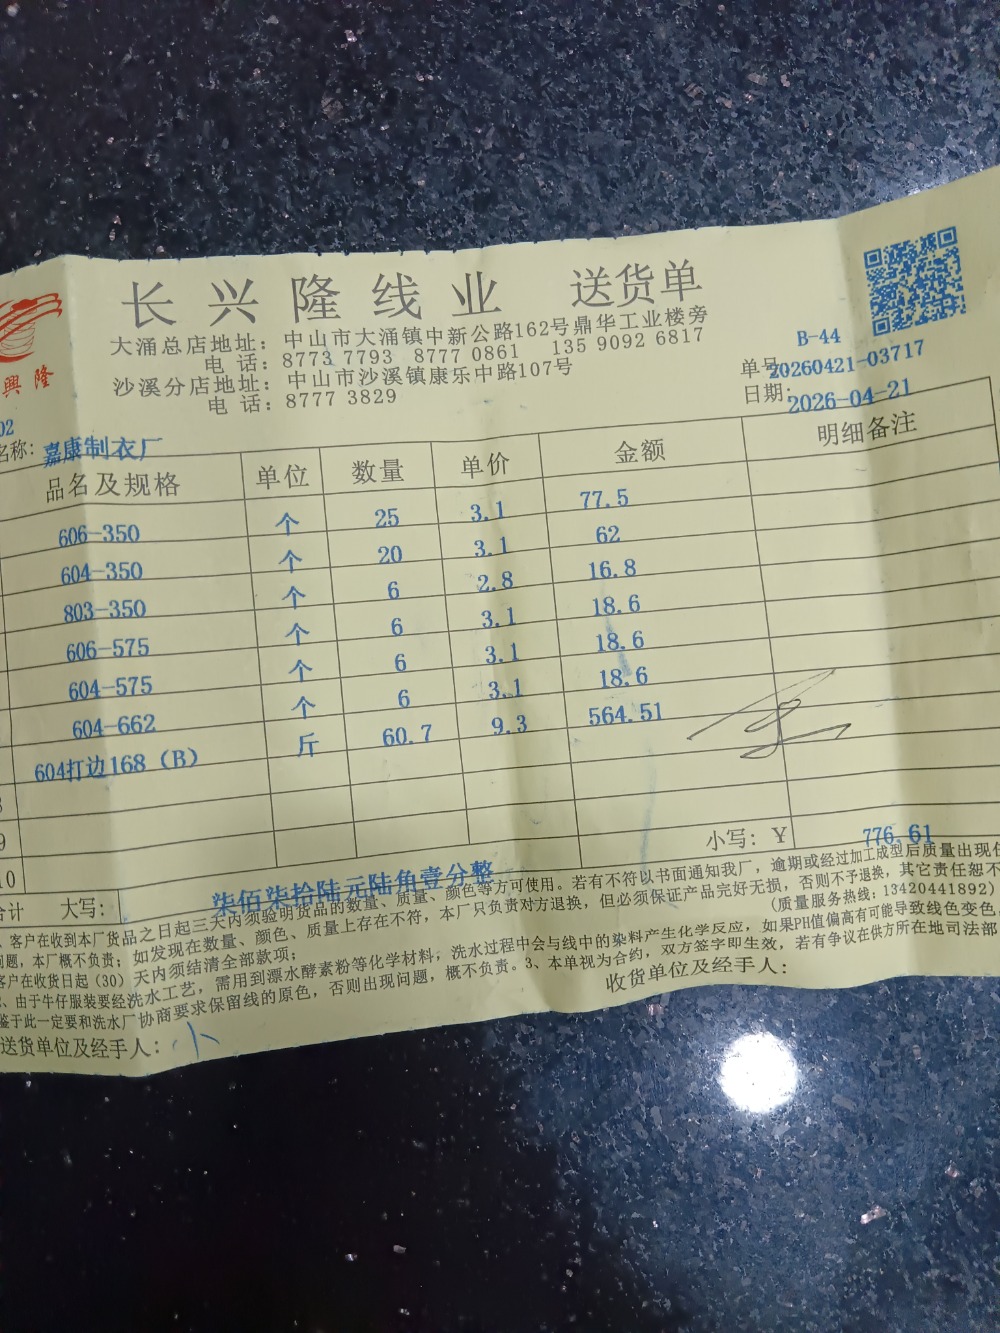 长兴隆线业 送货单
興隆
大涌总店地址：中山市大涌镇中新公路162号鼎华工业楼旁
电 话：8773 7793 8777 0861 135 9092 6817
沙溪分店地址：中山市沙溪镇康乐中路107号
电 话：8777 3829
B-44
单号 20260421-03717
日期：2026-04-21
02
名称：嘉康制衣厂
品名及规格 单位 数量 单价 金额 明细备注
606-350 个 25 3.1 77.5
604-350 个 20 3.1 62
803-350 个 6 2.8 16.8
606-575 个 6 3.1 18.6
604-575 个 6 3.1 18.6
604-662 个 6 3.1 18.6
604打边168（B） 斤 60.7 9.3 564.51
9
10
小写：￥ 776.61
合计 大写：柒佰柒拾陆元陆角壹分整
、客户在收到本厂货品之日起三天内须验明货品的数量、质量、颜色等方可使用。若有不符以书面通知我厂，逾期或经过加工成型后质量出现任
问题，本厂概不负责；如发现在数量、颜色、质量上存在不符，本厂只负责对方退换，但必须保证产品完好无损，否则不予退换，其它责任恕不
客户在收货日起（30）天内须结清全部款项；（质量服务热线：13420441892）
、由于牛仔服装要经洗水工艺，需用到漂水酵素粉等化学材料，洗水过程中会与线中的染料产生化学反应，如果PH值偏高有可能导致线色变色，
鉴于此一定要和洗水厂协商要求保留线的原色，否则出现问题，概不负责。3、本单视为合约，双方签字即生效，若有争议在供方所在地司法部
送货单位及经手人：小
收货单位及经手人：